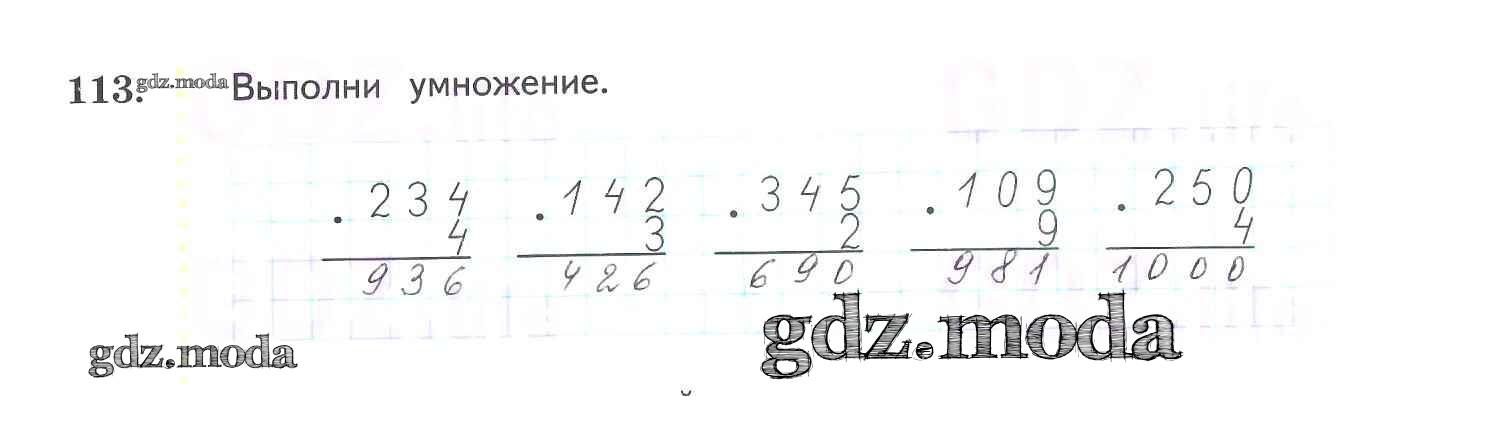 113. gdz.moda Выполни умножение.
. 234 . 142 . 345 . 109 . 250
4 3 2 9 4
936 426 690 981 1000
gdz.moda gdz.moda